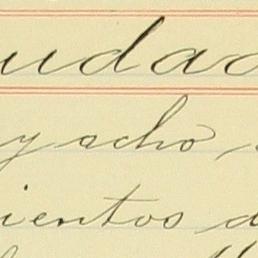 udad
y ocho
ientos d